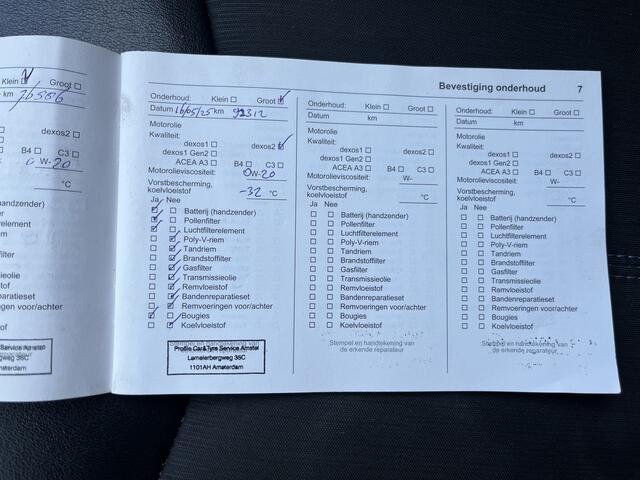 Klein
Groot
km 76586
dexos2
B4 C3
0 W-20
°C
andzender)
r
element
lter
sieolie
f
paratieset
n voor/achter
f
Service Amstel
gweg 36C
sterdam
Bevestiging onderhoud 7
Onderhoud: Klein Groot
Datum 16/05/25 km 92312
Motorolie
Kwaliteit:
dexos1 dexos2
dexos1 Gen2
ACEA A3 B4 C3
Motorolieviscositeit: 0W-20
Vorstbescherming,
koelvloeistof -32 °C
Ja Nee
Batterij (handzender)
Pollenfilter
Luchtfilterelement
Poly-V-riem
Tandriem
Brandstoffilter
Gasfilter
Transmissieolie
Remvloeistof
Bandenreparatieset
Remvoeringen voor/achter
Bougies
Koelvloeistof
Stempel en handtekening van
Profile Car&Tyre Service Amstel
Lemelerbergweg 36C
1101AH Amsterdam
Onderhoud: Klein Groot
Datum km
Motorolie
Kwaliteit:
dexos1 dexos2
dexos1 Gen2
ACEA A3 B4 C3
Motorolieviscositeit: W-
Vorstbescherming,
koelvloeistof °C
Ja Nee
Batterij (handzender)
Pollenfilter
Luchtfilterelement
Poly-V-riem
Tandriem
Brandstoffilter
Gasfilter
Transmissieolie
Remvloeistof
Bandenreparatieset
Remvoeringen voor/achter
Bougies
Koelvloeistof
Stempel en handtekening van
de erkende reparateur
Onderhoud: Klein Groot
Datum km
Motorolie
Kwaliteit:
dexos1 dexos2
dexos1 Gen2
ACEA A3 B4 C3
Motorolieviscositeit: W-
Vorstbescherming,
koelvloeistof °C
Ja Nee
Batterij (handzender)
Pollenfilter
Luchtfilterelement
Poly-V-riem
Tandriem
Brandstoffilter
Gasfilter
Transmissieolie
Remvloeistof
Bandenreparatieset
Remvoeringen voor/achter
Bougies
Koelvloeistof
Stempel en handtekening van
de erkende reparateur